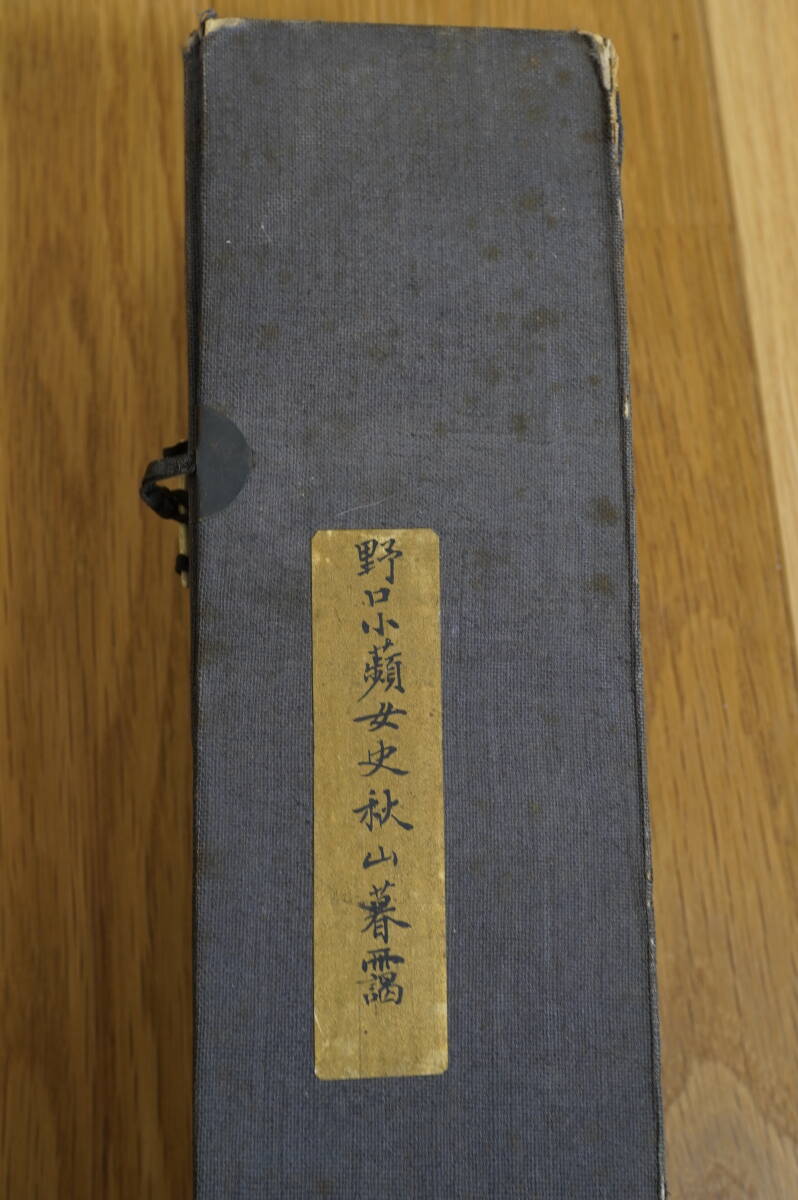 野口小蘋女史秋山暮靄